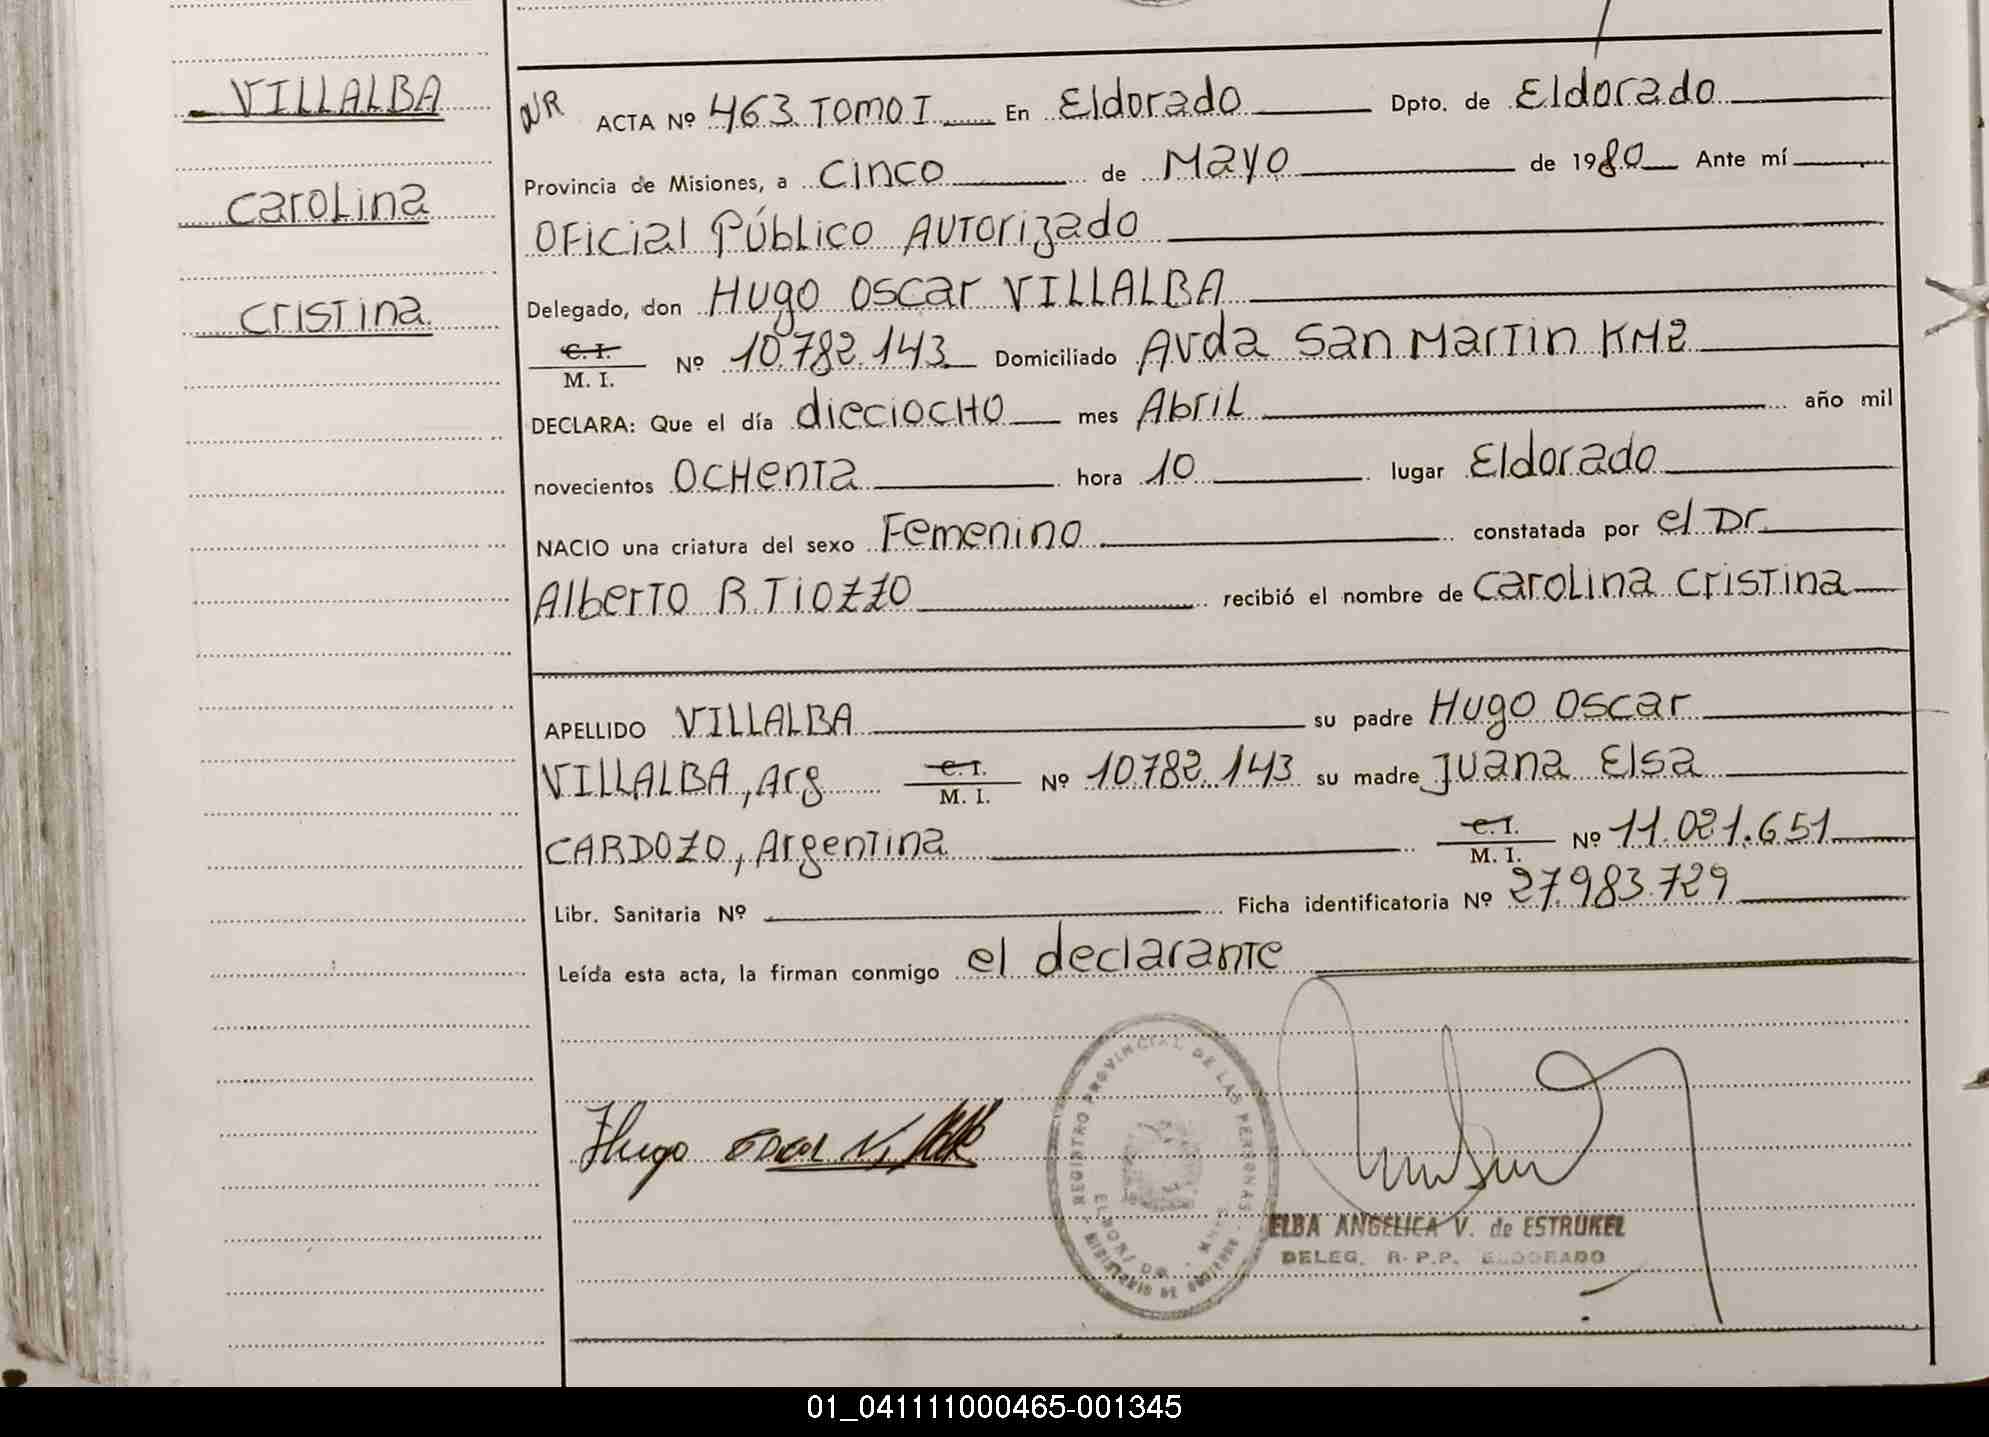 VILLALBA
Carolina
Cristina
NR ACTA Nº 463 TOMO I En Eldorado Dpto. de Eldorado
Provincia de Misiones, a cinco de Mayo de 1980 Ante mí
Oficial Público Autorizado
Delegado, don Hugo Oscar VILLALBA
C. I. M. I. Nº 10.782.143 Domiciliado Avda San Martin KM2
DECLARA: Que el día dieciocho mes Abril año mil
novecientos ochenta hora 10 lugar Eldorado
NACIO una criatura del sexo Femenino constatada por el Dr.
Alberto R. Tiozzo recibió el nombre de Carolina Cristina
APELLIDO VILLALBA su padre Hugo Oscar
VILLALBA, Arg C. I. M. I. Nº 10782.143 su madre Juana Elsa
CARDOZO, Argentina C. I. M. I. Nº 11.021.651
Libr. Sanitaria Nº Ficha identificatoria Nº 27.983.729
Leída esta acta, la firman conmigo el declarante
Hugo Oscar
REGISTRO PROVINCIAL DE LAS PERSONAS
ELDORADO
MINISTERIO DE GOBIERNO
ELBA ANGELICA V. de ESTRUKEL
DELEG. R.P.P. ELDORADO
01_041111000465-001345